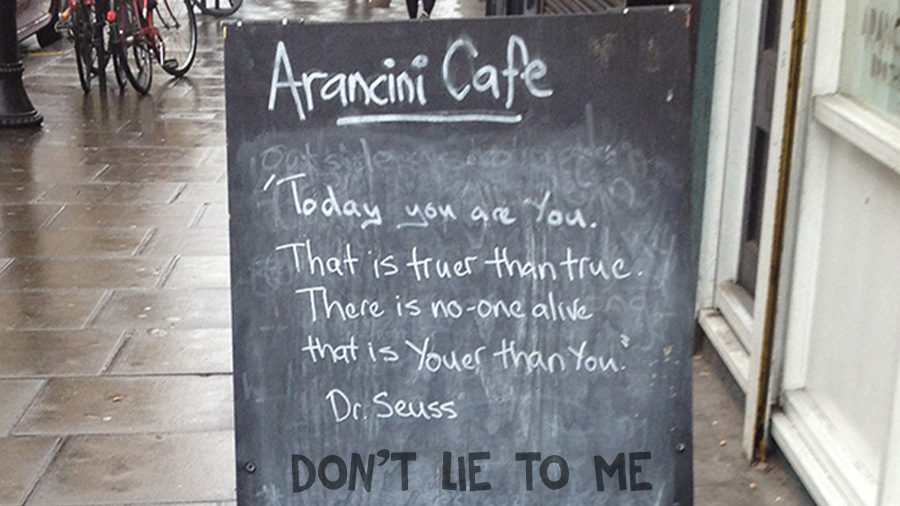 Arancini Cafe
'Today you are You.
That is truer than true.
There is no-one alive
that is Youer than You.'
Dr. Seuss
DON'T LIE TO ME